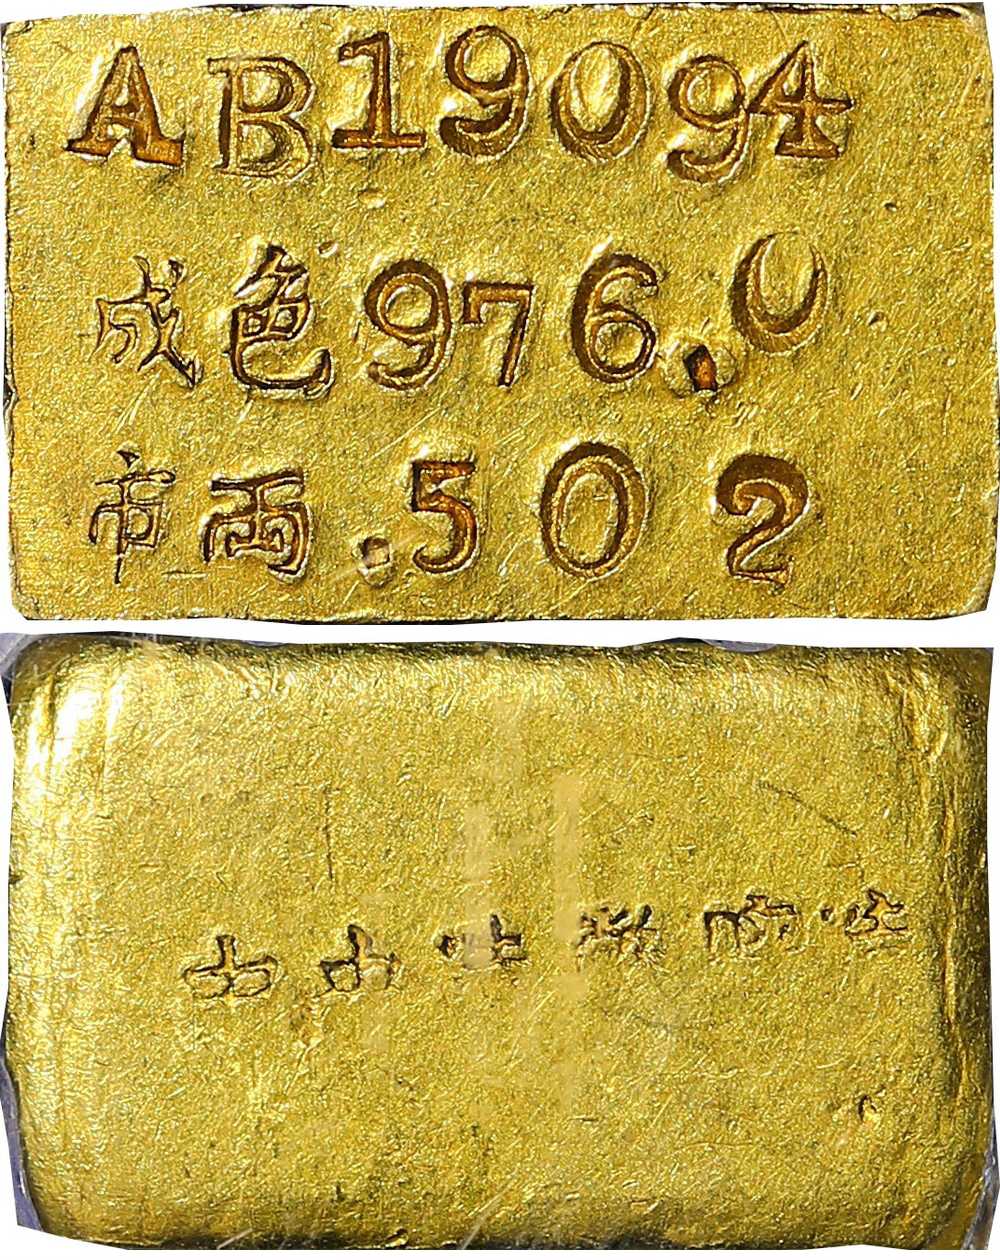 AB19094
成色976.0
市両.502